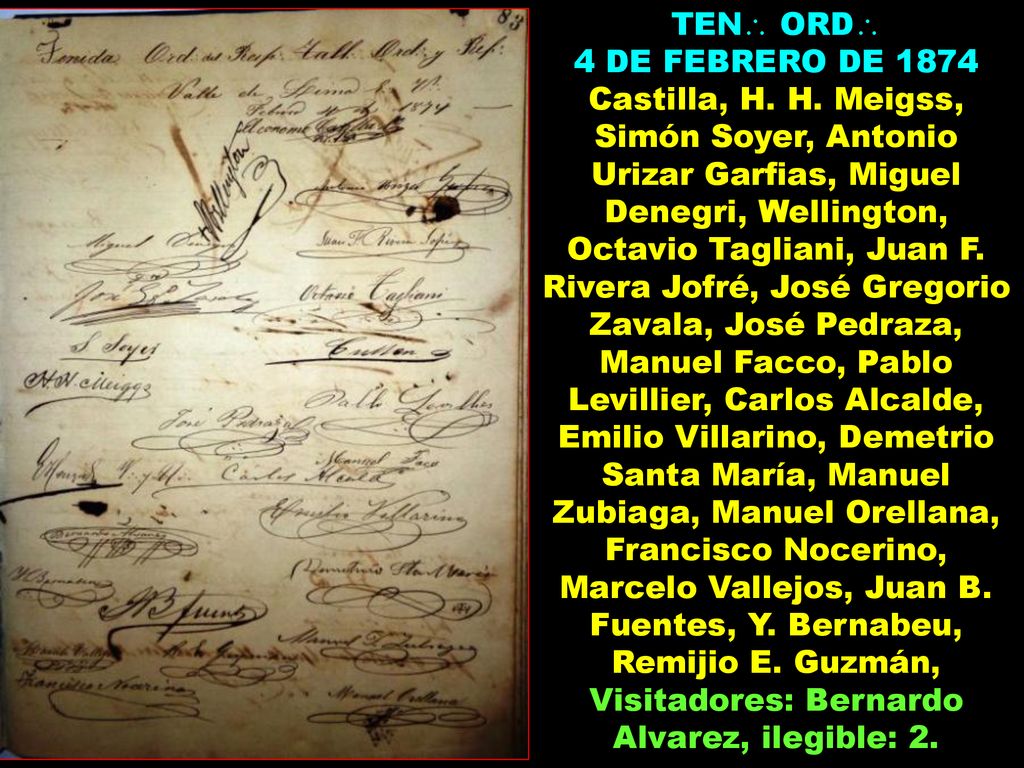 83
Tenida Ord∴ del Resp∴ Tall∴ Ord∴ y Ref∴
Valle de Lima E. V∴
Febrero 4 de 1874
Wellington
Antonio Urizar Garfias
Miguel Denegri
Juan F. Rivera Jofré
José G. Zavala
Octavio Tagliani
S. Soyer
H. H. Meiggs
Pablo Levillier
José Pedraza
Manuel Faco
Carlos Alcalde
Emilio Villarino
Bernardo Alvarez
Demetrio Sta María
Y Bernabeu
J B Fuentes
Manuel Zubiaga
Francisco Nocerino
Manuel Orellana
TEN∴ ORD∴
4 DE FEBRERO DE 1874
Castilla, H. H. Meigss,
Simón Soyer, Antonio
Urizar Garfias, Miguel
Denegri, Wellington,
Octavio Tagliani, Juan F.
Rivera Jofré, José Gregorio
Zavala, José Pedraza,
Manuel Facco, Pablo
Levillier, Carlos Alcalde,
Emilio Villarino, Demetrio
Santa María, Manuel
Zubiaga, Manuel Orellana,
Francisco Nocerino,
Marcelo Vallejos, Juan B.
Fuentes, Y. Bernabeu,
Remijio E. Guzmán,
Visitadores: Bernardo
Alvarez, ilegible: 2.